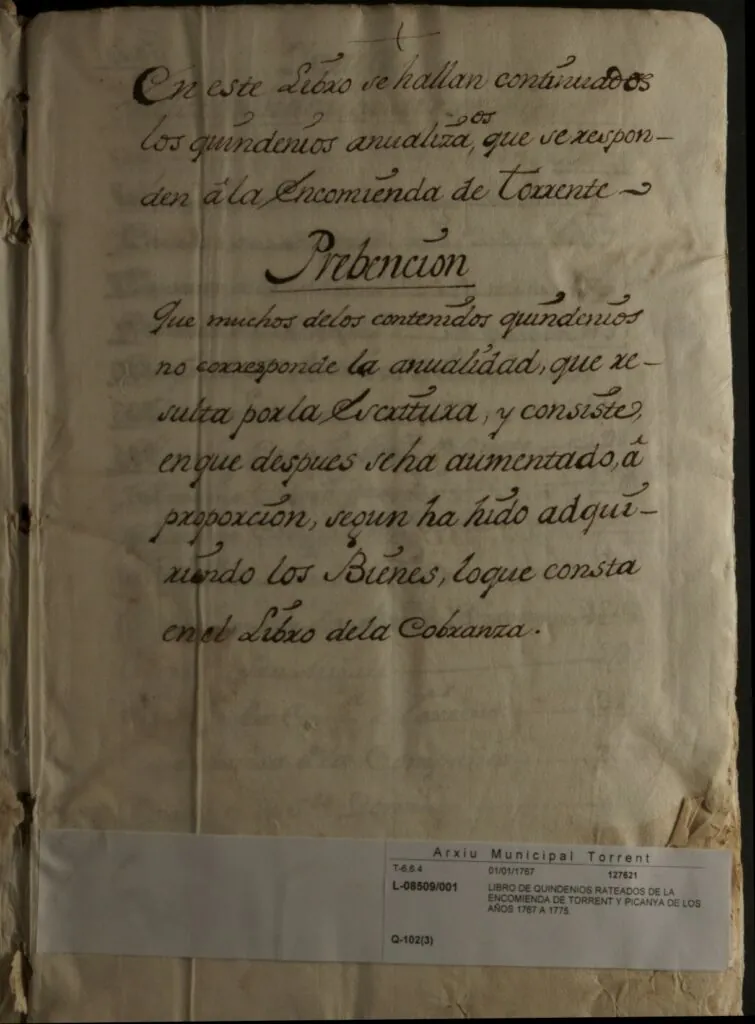 En este Libro se hallan continuados
los quindenios anualizaos, que se respon-
den â la Encomienda de Torrente
Prebencion
Que muchos delos contenidos quindenios
no corresponde la anualidad, que re-
sulta por la Escritura, y consiste,
en que despues se ha aumentado, â
proporcion, segun ha hido adqui-
riendo los Bienes, loque consta
en el Libro dela Cobranza.
Arxiu Municipal Torrent
T-6.6.4 01/01/1767 127621
L-08509/001 LIBRO DE QUINDENIOS RATEADOS DE LA
ENCOMIENDA DE TORRENT Y PICANYA DE LOS
AÑOS 1767 A 1775.
Q-102(3)